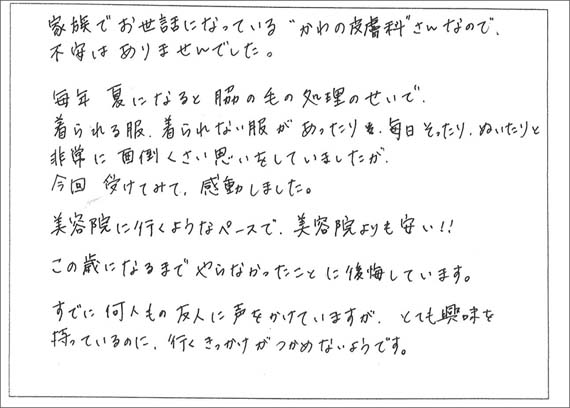 家族でお世話になっている“かわの皮膚科”さんなので、
不安はありませんでした。
毎年 夏になると 脇の毛の処理のせいで、
着られる服、着られない服があったり、毎日そったり、ぬいたりと
非常に面倒くさい思いをしていましたが、
今回 受けてみて、感動しました。
美容院に行くようなペースで、美容院よりも安い!!
この歳になるまでやらなかったことに後悔しています。
すでに何人もの友人に声をかけていますが、とても興味を
持っているのに、行くきっかけがつかめないようです。